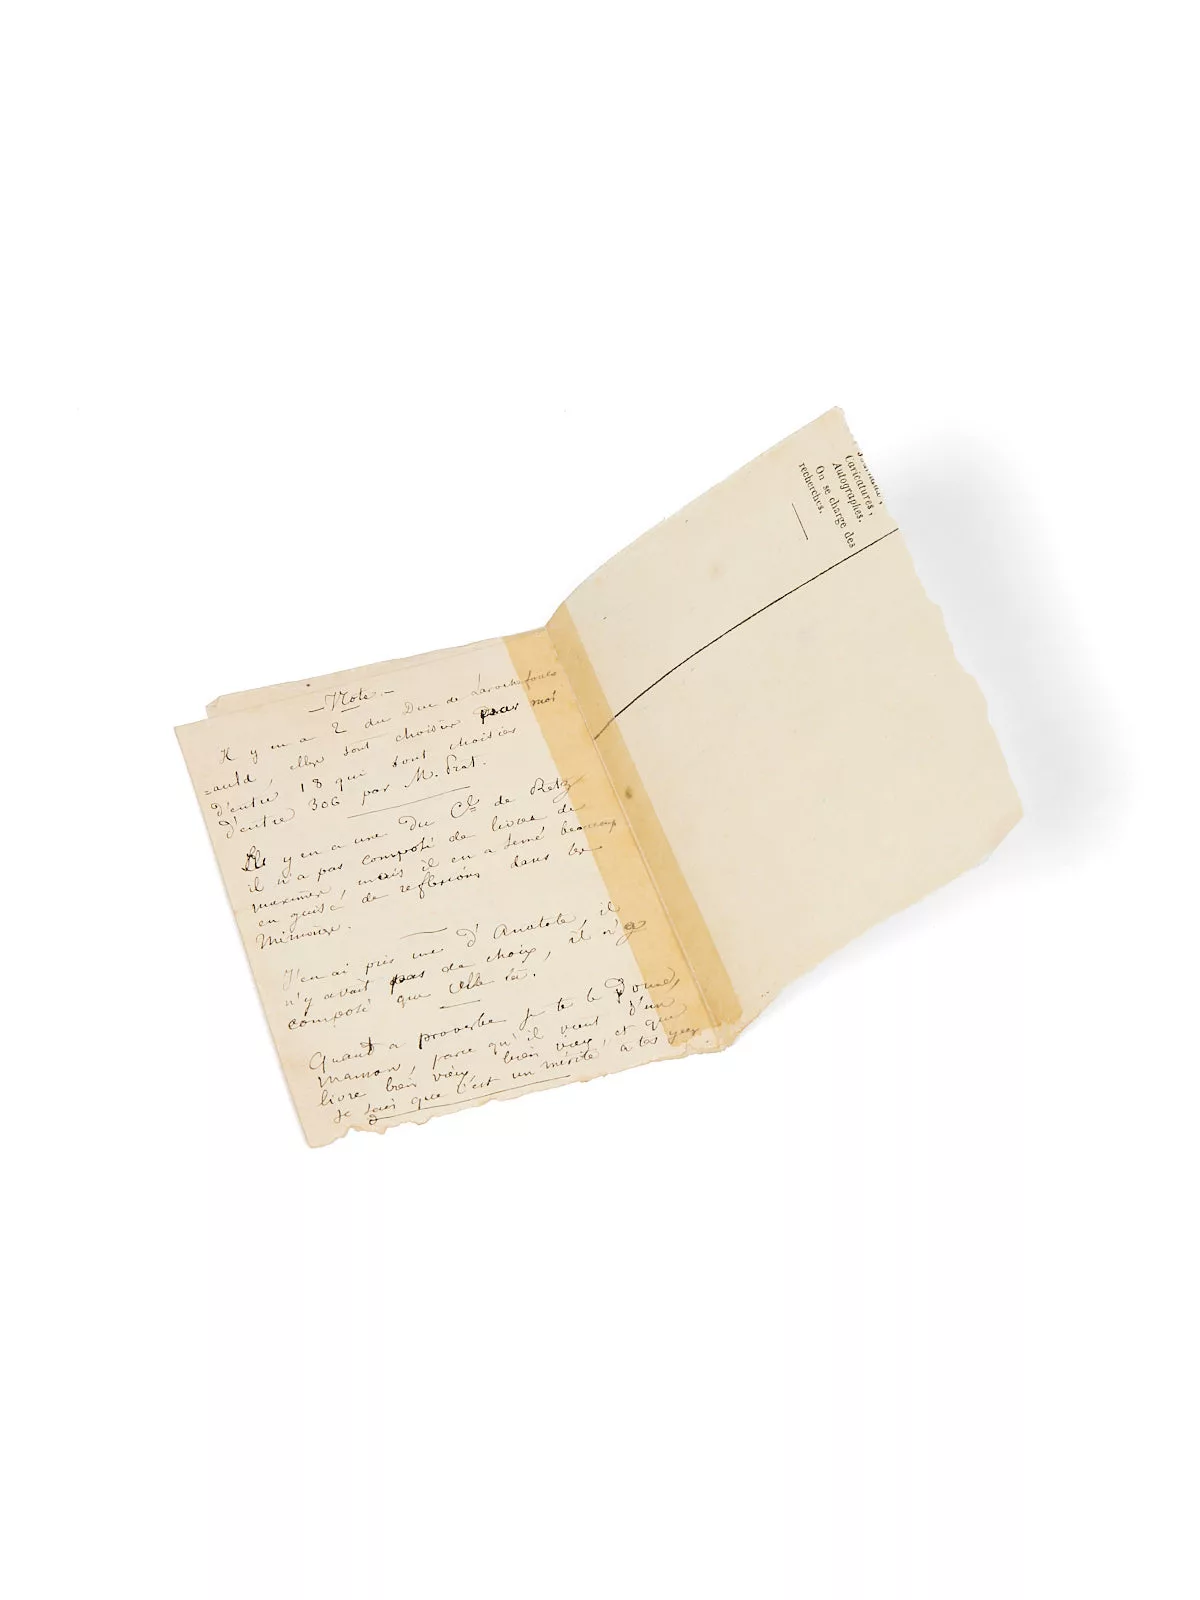 — Note. —
Il y en a 2 du Duc de Larochefouc
=auld, elles sont choisies par moi
d'entre 18 qui sont choisies
d'entre 306 par M. Prat.
Il y en a une du Cl de Retz
il n'a pas composé de livres de
maximes, mais il en a semé beaucoup
en guise de reflexions dans les
Mémoires.
J'en ai pris une d'Anatole, il
n'y avait pas de choix, il n'a
composé que celle là.
Quand a proverbe je te le donne,
maman, parce qu'il vient d'un
livre bien vieux, bien vieux, et que
je sais que c'est un mérite à tes yeux
Caricatures,
Autographes.
On se charge des
recherches.